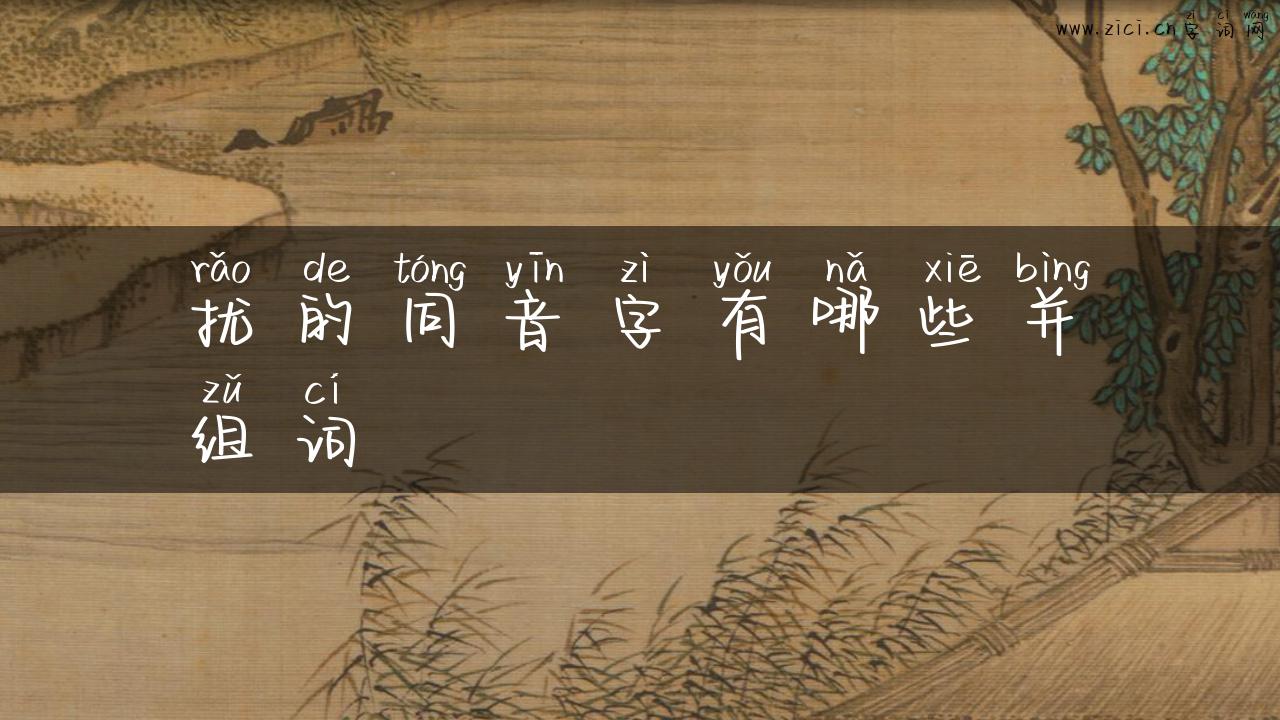 zì cí wǎng
www.zici.cn字词网
rǎo de tóng yīn zì yǒu nǎ xiē bìng
扰的同音字有哪些并
zǔ cí
组词